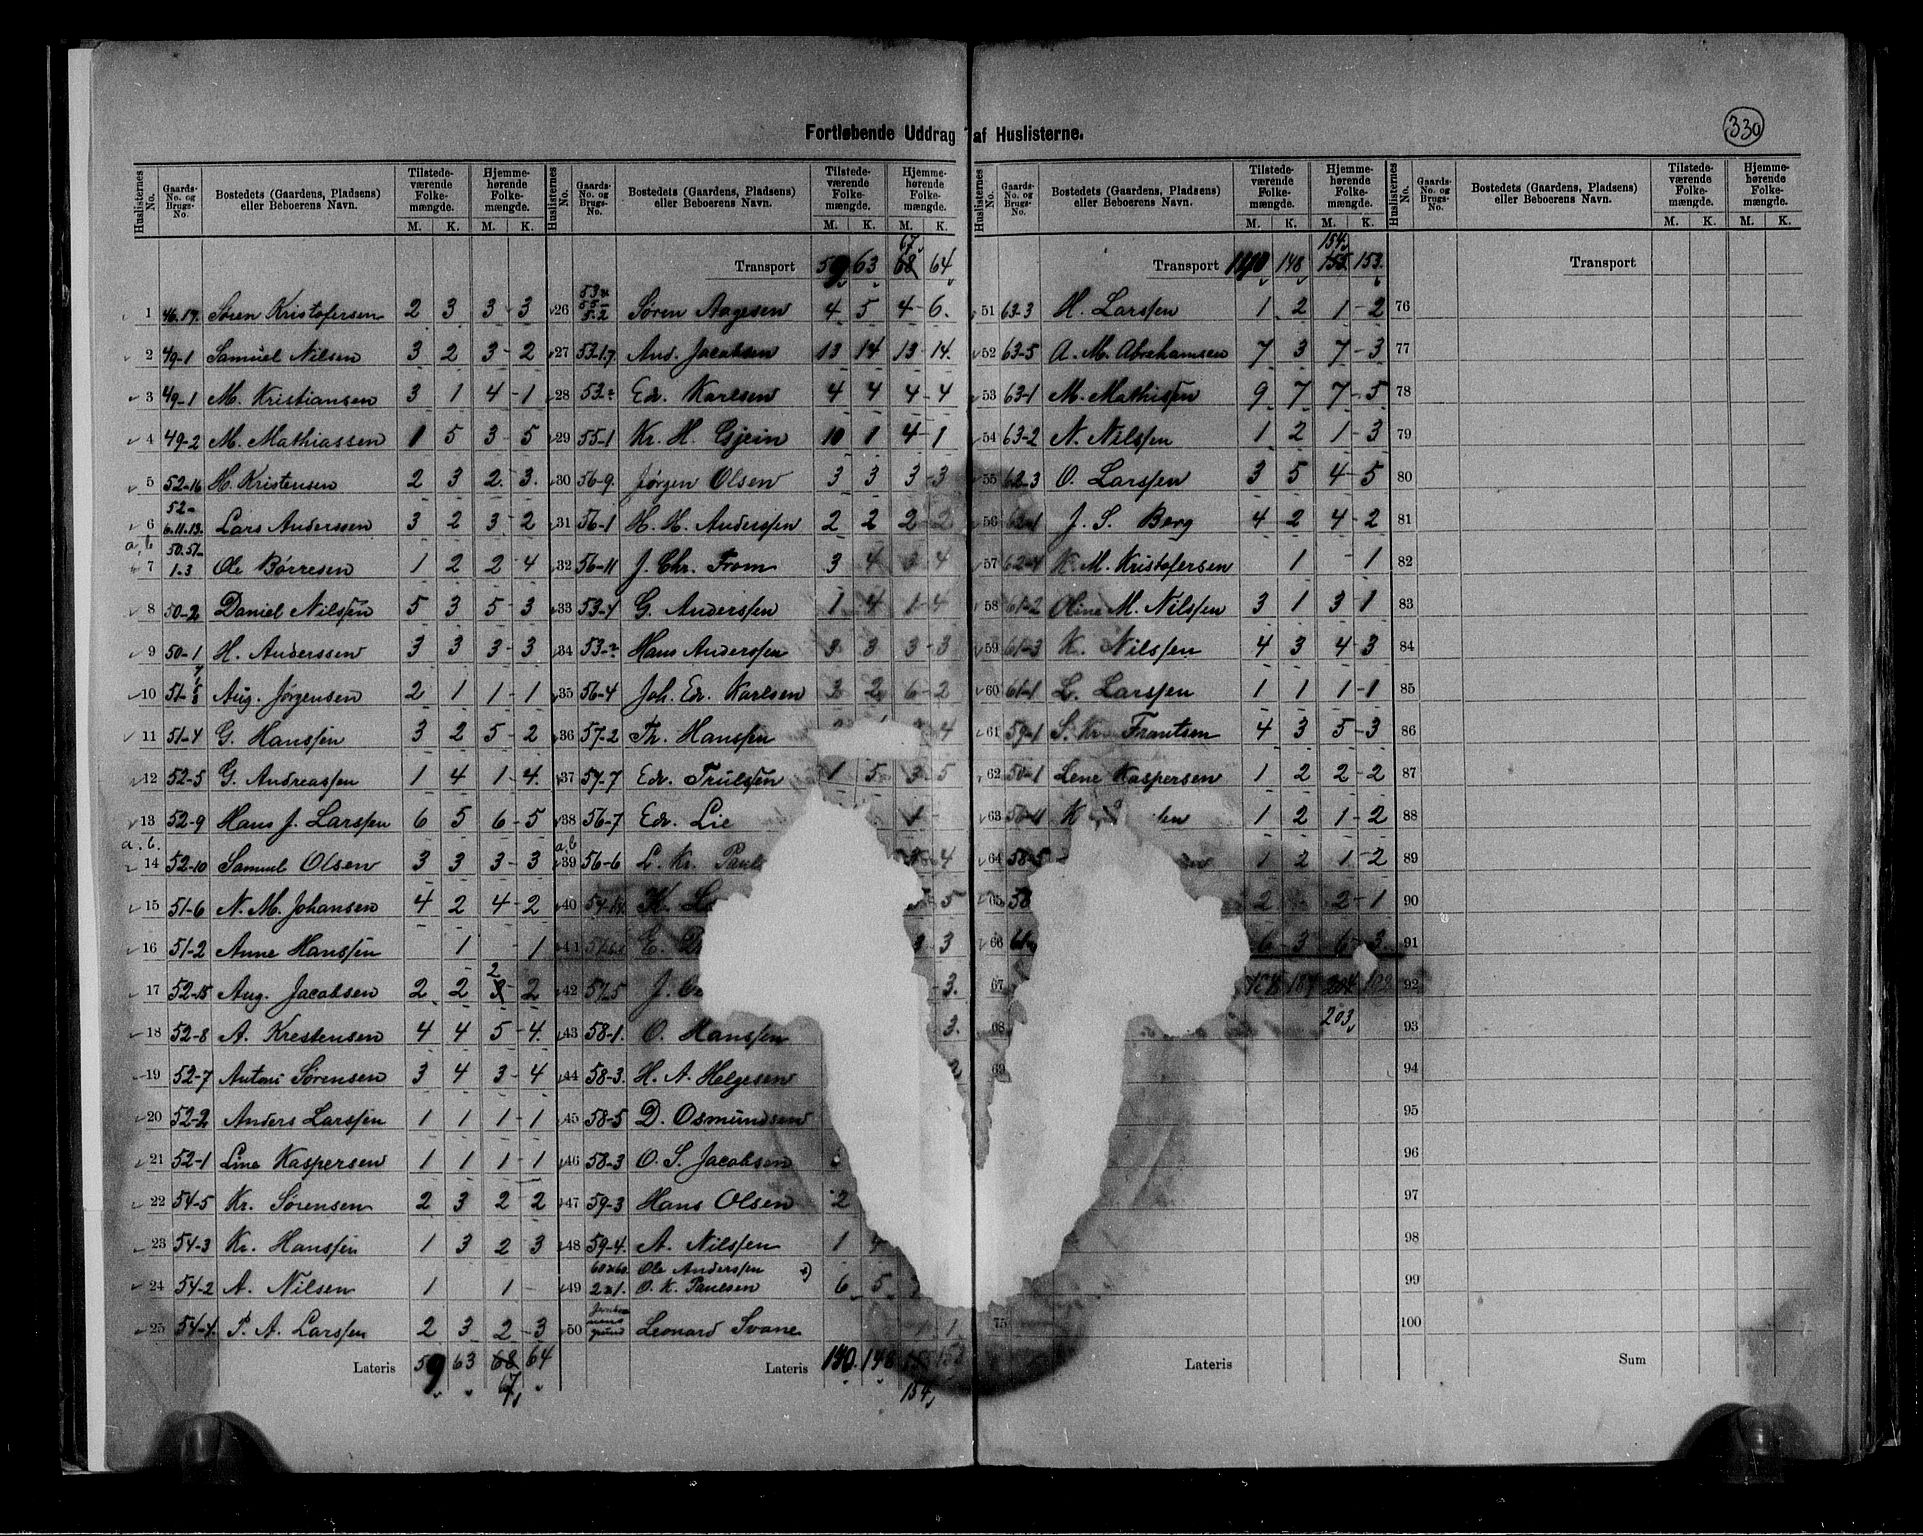 330
Fortløbende Uddrag af Huslisterne.
Huslisternes No. Gaards-No. og Brugs-No. Bostedets (Gaardens, Pladsens) eller Beboerens Navn. Tilstedeværende Folkemængde. M. K. Hjemmehørende Folkemængde. M. K.
1 46.17. Søren Kristofersen 2 3 3-3
2 49-1 Samuel Nilsen 3 2 3-2
3 49-1 M. Kristiansen 3 1 4-1
4 49-2 M. Mathiassen 1 5 3-5
5 52-16 H. Kristensen 2 3 2. 3.
6 52- 6.11.13. Lars Anderssen 3 2 3-2
a, b
7 50.51- 1-3 Ole Børresen 1 2 2-4
8 50-2 Daniel Nilssen 5 3 5-3
9 50-1 H. Anderssen 3 3 3-3
10 51- Aug. Jørgensen 2 1 1-1
11 51-4 G. Hanssen 3 2 5-2
12 52-5 G. Andreassen 1 4 1-4.
13 52-9 Hans J. Larssen 6 5 6-5
a. b.
14 52-10 Samuel Olsen 3 3 3-3
15 51-6 N. M. Johansen 4 2 4-2
16 51-2 Anne Hanssen 1 -1
17 52-15 Aug. Jacobsen 2 2 3 2 -2
18 52-8 A. Krestensen 4 4 5-4.
19 52-7 Antoni Sørensen 3 4 3-4
20 52-2 Anders Larssen 1 1 1-1
21 52-1 Line Kaspersen 1 1 1-1
22 54-5 Kr. Sørensen 2 3 2-2
23 54-3 Kr. Hanssen 1 3 2-3
24 54-2 A. Nilsen 1 1-
25 54-4. P. A. Larssen 2 3 2-3
Lateris 59 63 68 64
67
Huslisternes No. Gaards-No. og Brugs-No. Bostedets (Gaardens, Pladsens) eller Beboerens Navn. Tilstedeværende Folkemængde. M. K. Hjemmehørende Folkemængde. M. K.
67
Transport 59 63 68 64
26 5.2 Søren Aagesen 4 5 4-6.
27 53.1.7 And. Jacobsen 13 14 13-14.
28 53- Edv. Karlsen 4 4 4-4
29 55-1 Kr. H. Gjein 10 1 4-1
30 56-9. Jørgen Olsen 3 3 3-3
31 56-1 H. H. Anderssen 2 2 2-2
32 56-11 J. Chr. From 3 4 4
33 53-4 G. Anderssen 1 4 1-4
34 53- Hans Anderssen 3 3 3-3
35 56-4 Joh. Edv. Karlsen 3 2 6-2
36 57-2 Th. Hanssen 4
37 57-7 Edv. Trulssen 1 5 3-5
38 56-7 Edv. Lie 1-
a, b
39 56-6 L. Kr. 4
40 5
41 E. 3
42 57.5 J. -3.
43 58-1. O. Hanssen 3.
44 58-3. H. A. Helgesen 2
45 58-5 D. Osmundsen
46 58-3 O. S. Jacobsen
47 59-3 Hans Olsen 2
48 59-4. A. Nilssen 1
49 2 1. Ole Anderssen O. K. Paulsen 6 5
50 Leonard Svane 1.
Lateris 140. 148 155 153
154
Huslisternes No. Gaards-No. og Brugs-No. Bostedets (Gaardens, Pladsens) eller Beboerens Navn. Tilstedeværende Folkemængde. M. K. Hjemmehørende Folkemængde. M. K.
154
Transport 140 148 155. 153.
51 63-3 H. Larssen 1 2 1-2
52 63-5 A. M. Abrahamsen 7 3 7-3
53 63-1 M. Mathissen 9 7 7-5
54 63-2 N. Nilssen 1 2 1-3
55 62-3 O. Larssen 3 5 4-5
56 62-1 J. S. Berg 4 2 4-2
57 62-4 K. M. Kristofersen 1 -1
58 61-2 Oline M. Nilssen 3 1 3 1
59 61-3 K. Nilssen 4 3 4-3
60 61-1 L. Larssen 1 1 1-1
61 59-1 S. Kr. Frantsen 4 3 5-3
62 50-1 Lene Kaspersen 1 2 2-2
63 K 1 2 1-2
64 58-5 1 2 1-2
65 58 2 2-1
66 61- 6-3 6-3.
67 204
68 203
69
75
Lateris
Huslisternes No. Gaards-No. og Brugs-No. Bostedets (Gaardens, Pladsens) eller Beboerens Navn. Tilstedeværende Folkemængde. M. K. Hjemmehørende Folkemængde. M. K.
Transport
76
77
78
79
80
81
82
83
84
85
86
87
88
89
90
91
92
93
94
95
96
97
98
99
100
Sum